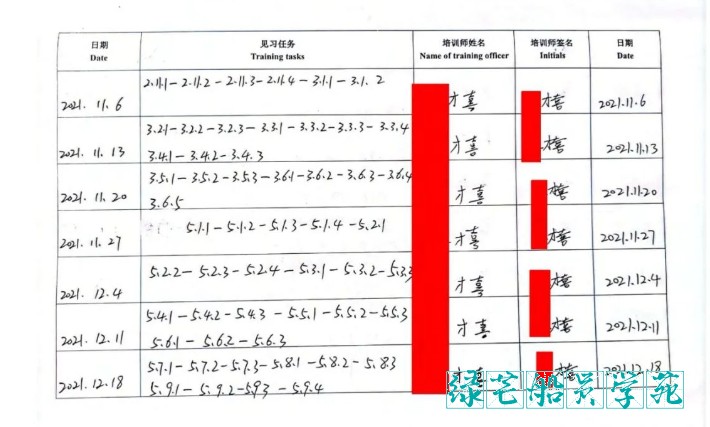 日期 见习任务 培训师姓名 培训师签名 日期
Date Training tasks Name of training officer Initials Date
2.11.1-2.11.2-2.11.3-2.11.4-3.1.1-3.1.2
2021.11.6 才喜 2021.11.6
3.2.1-3.2.2-3.2.3-3.3.1-3.3.2-3.3.3-3.3.4
2021.11.13 3.4.1-3.4.2-3.4.3 才喜 2021.11.13
3.5.1-3.5.2-3.5.3-3.6.1-3.6.2-3.6.3-3.6.4
2021.11.20 3.6.5 才喜 2021.11.20
5.1.1-5.1.2-5.1.3-5.1.4-5.2.1
2021.11.27 才喜 2021.11.27
5.2.2-5.2.3-5.2.4-5.3.1-5.3.2-5.3.3
2021.12.4 才喜 2021.12.4
5.4.1-5.4.2-5.4.3-5.5.1-5.5.2-5.5.3
2021.12.11 5.6.1-5.6.2-5.6.3 才喜 2021.12.11
5.7.1-5.7.2-5.7.3-5.8.1-5.8.2-5.8.3
2021.12.18 5.9.1-5.9.2-5.9.3-5.9.4 才喜 2021.12.18
绿芒船员学苑